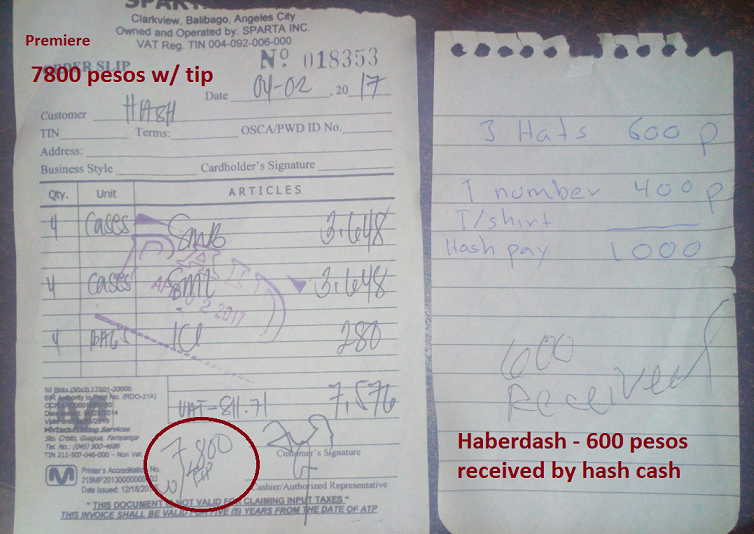 SPARTA
Clarkview, Balibago, Angeles City
Owned and Operated by: SPARTA INC.
VAT Reg. TIN 004-092-006-000
Premiere
7800 pesos w/ tip
ORDER SLIP
Nº 018353
Date 04-02, 2017
Customer HASH
TIN Terms: OSCA/PWD ID No.
Address:
Business Style Cardholder's Signature
Qty. Unit ARTICLES
4 cases SMB 3,648
4 cases SML 3,648
4 BAGS ICE 280
2 2017
VAT = 811.71 7,576
7,800
w/ TIP
50 Bklts (50x3)
BIR Authority to Print No. (RDO-21A)
Sto. Cristo, Guagua, Pampanga
Tel. No.: (045) 900-4686
TIN 211-507-046-000 – Non Vat
Customer's Signature
Printer's Accreditation No.
Date Issued: 12/18/
Cashier/Authorized Representative
"THIS DOCUMENT IS NOT VALID FOR CLAIMING INPUT TAXES"
THIS INVOICE SHALL BE VALID FOR FIVE (5) YEARS FROM THE DATE OF ATP
3 Hats 600 p
1 number 400 p
T/shirt
Hash pay 1000
600
Received
Haberdash - 600 pesos
received by hash cash